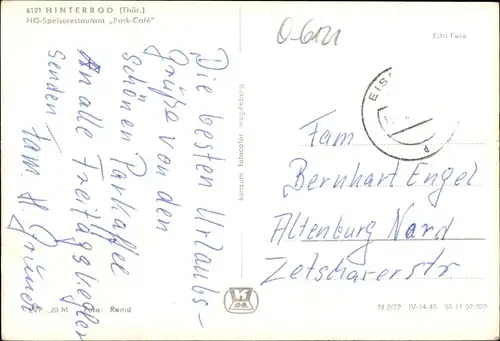 6121 HINTERROD (Thür.)
HO-Speiserestaurant „Park-Café"
O-6121
Echt Foto
EIS
Die besten Urlaubs-
grüße von den
schönen Parkaffee
An alle Freitagskegler
senden Fam. H. Grüner
konsum fotocolor magdeburg
Fam
Bernhart Engel
Altenburg Nord
Zetscharerstr
EVP -,20 M Foto: Remd
N 2/72 IV-14-45 05 11 07 020